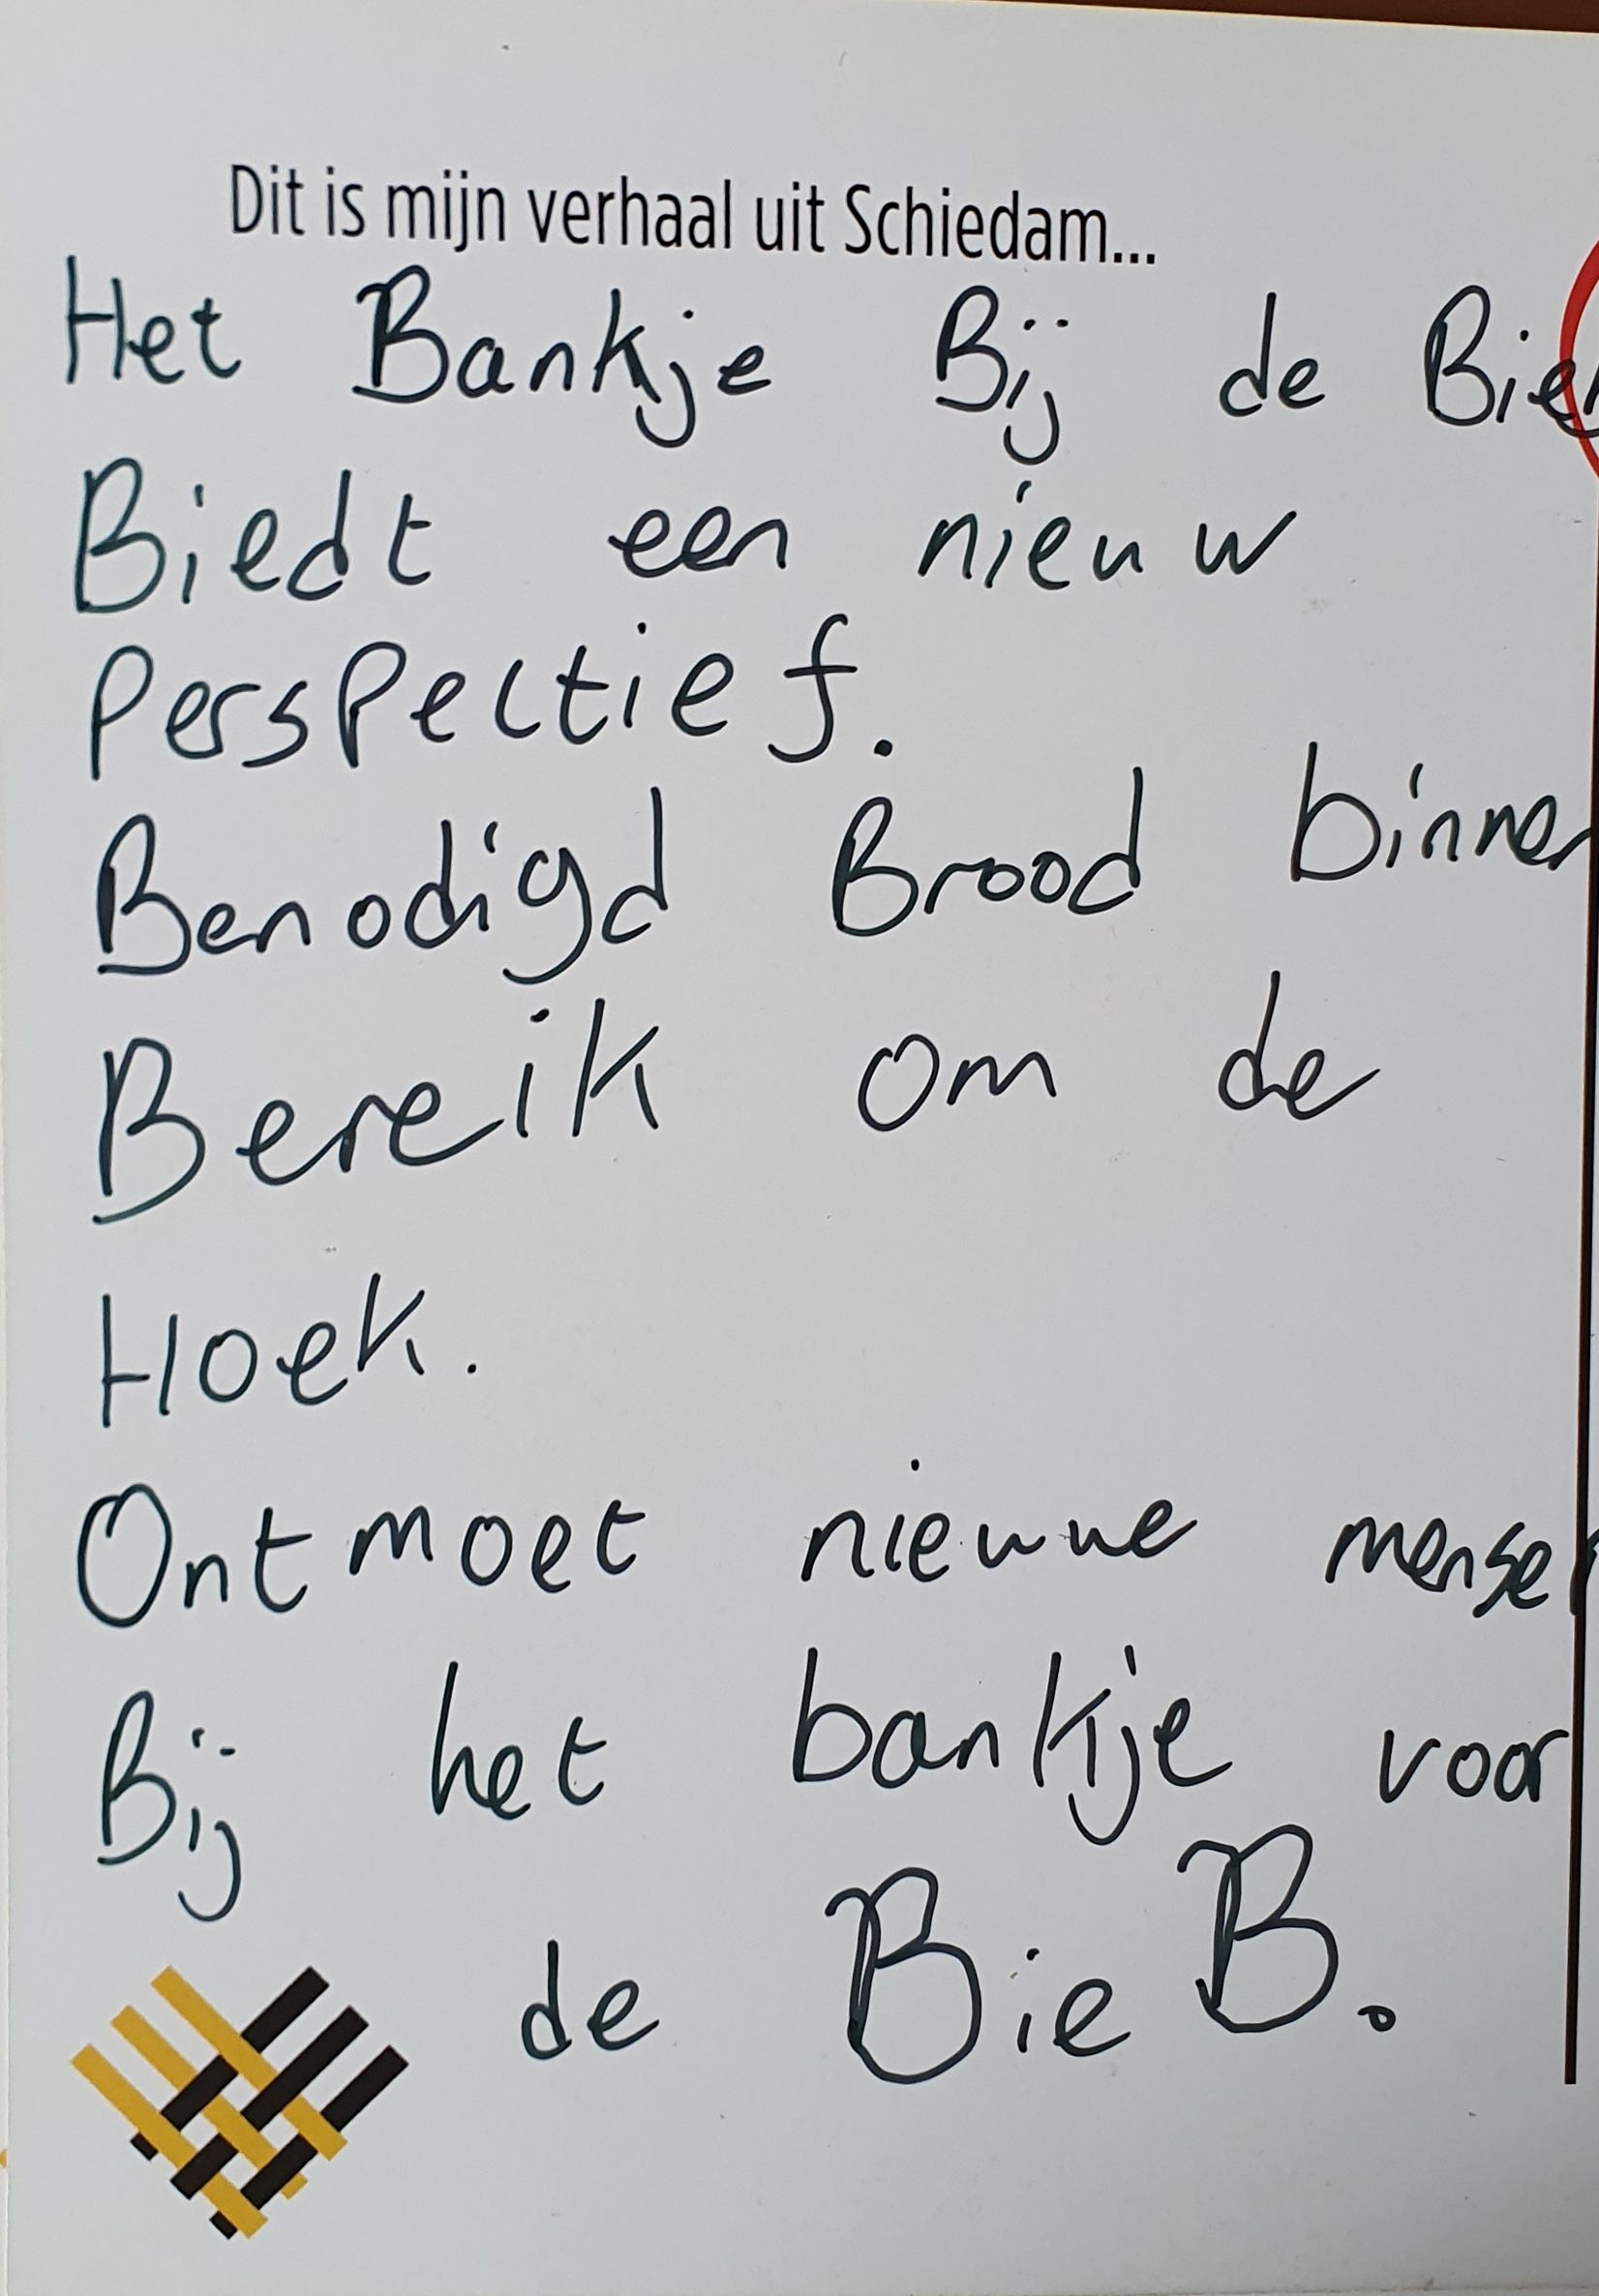 Dit is mijn verhaal uit Schiedam...
Het Bankje Bij de Bie
Biedt een nieuw
Perspectief.
Benodigd Brood binnen
Bereik om de
Hoek.
Ontmoet nieuwe mensen
Bij het bankje voor
de BieB.